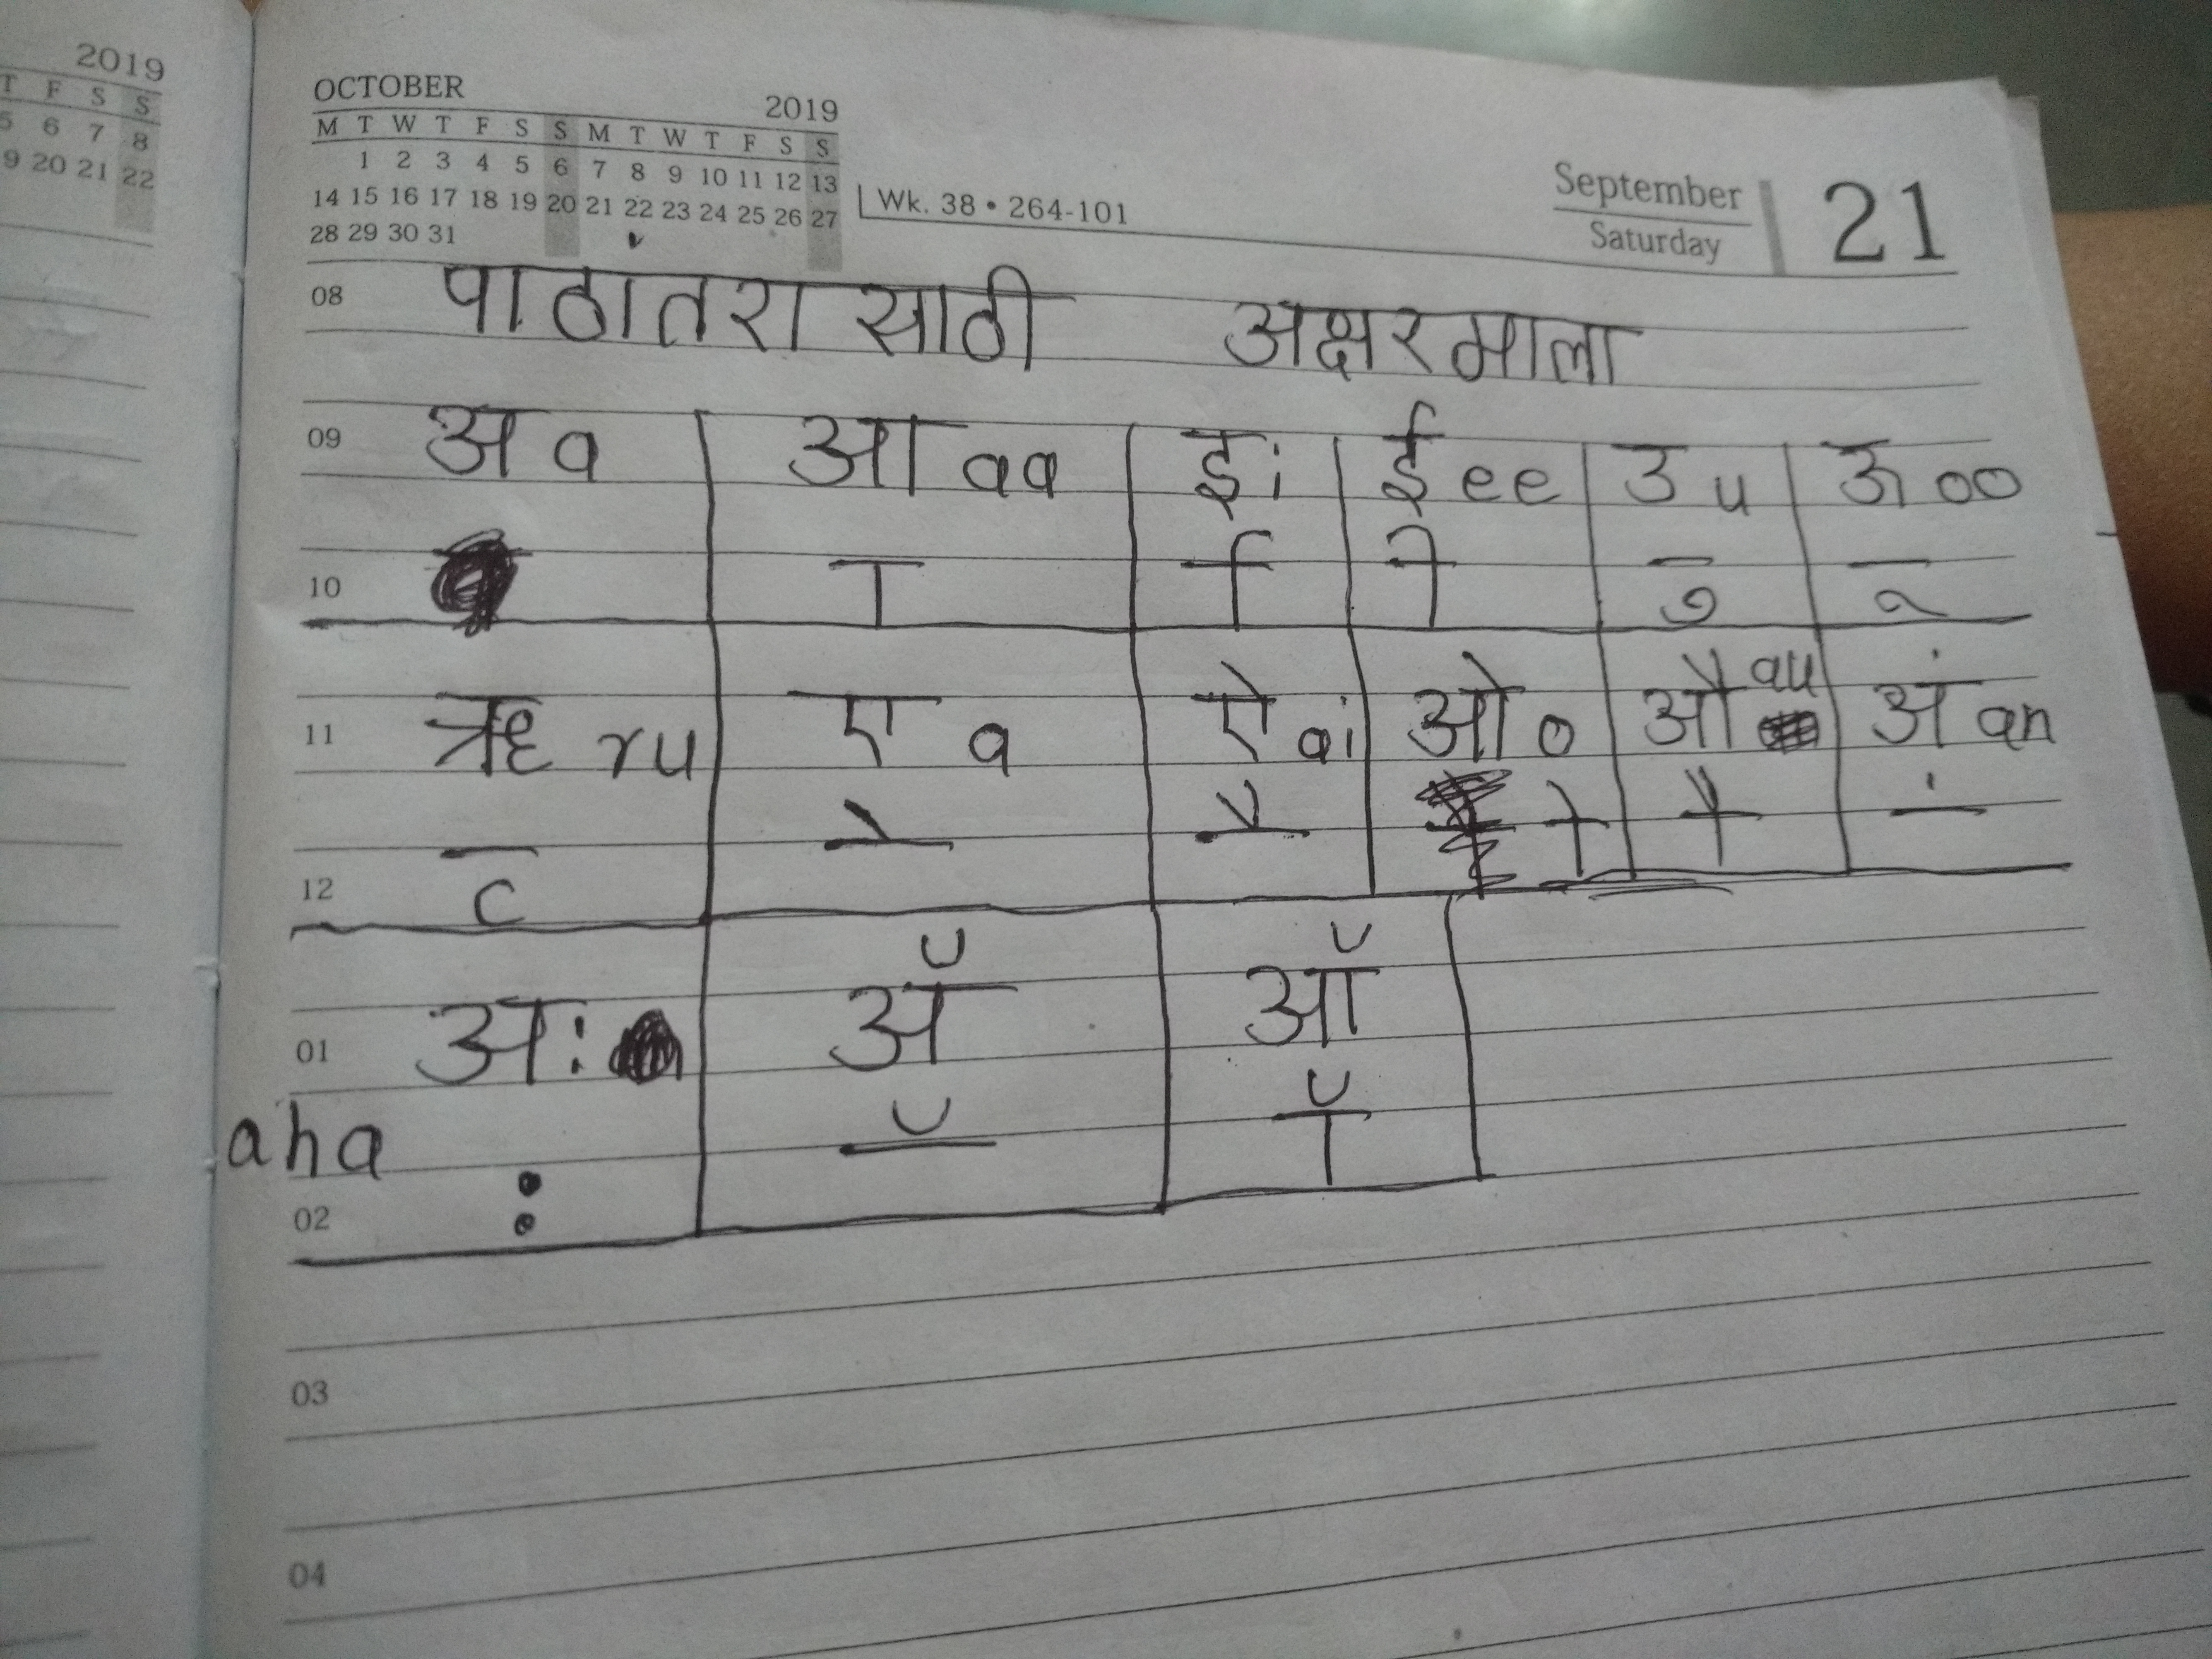 2019
T F S S
5 6 7 8
9 20 21 22
OCTOBER 2019
M T W T F S S M T W T F S S
1 2 3 4 5 6 7 8 9 10 11 12 13
14 15 16 17 18 19 20 21 22 23 24 25 26 27
28 29 30 31
Wk. 38 • 264-101
September
Saturday
21
08 पाठांतरा साठी अक्षरमाला
09 अ a आ aa इ i ई ee उ u ऊ oo
10 ा ि ी ु ू
11 ऋ ru ए a ऐ ai ओ o औ au अं an
12 ृ े ै ो ौ ं
01 अः अॅ ऑ
aha
02 ः ॅ ॉ
03
04